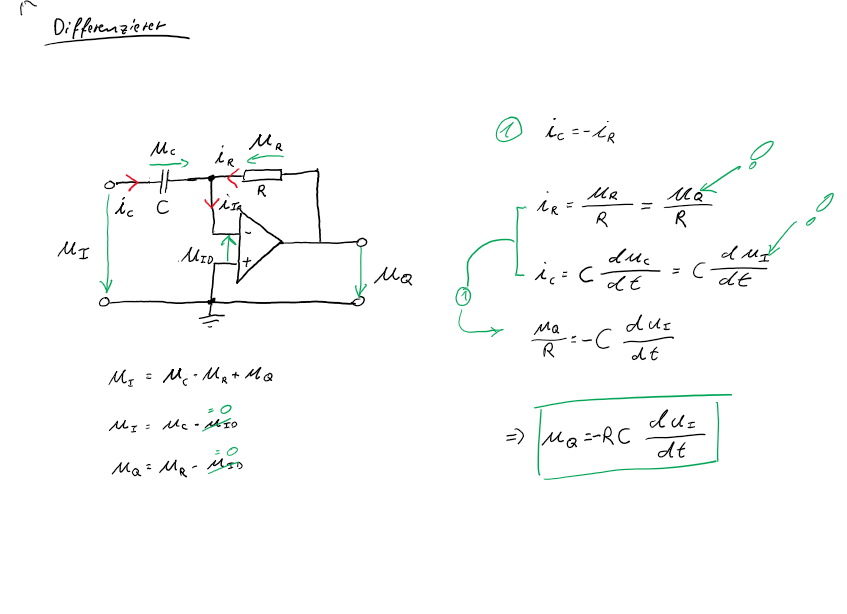 Differenzierer
u_C
i_R
u_R
i_C
C
R
i_I
u_I
u_ID
-
+
u_Q
u_I = u_C - u_R + u_Q
u_I = u_C - u_ID = 0
u_Q = u_R - u_ID = 0
① i_C = -i_R
i_R = u_R / R = u_Q / R
i_C = C du_C / dt = C du_I / dt
①
u_Q / R = -C du_I / dt
⇒ u_Q = -RC du_I / dt